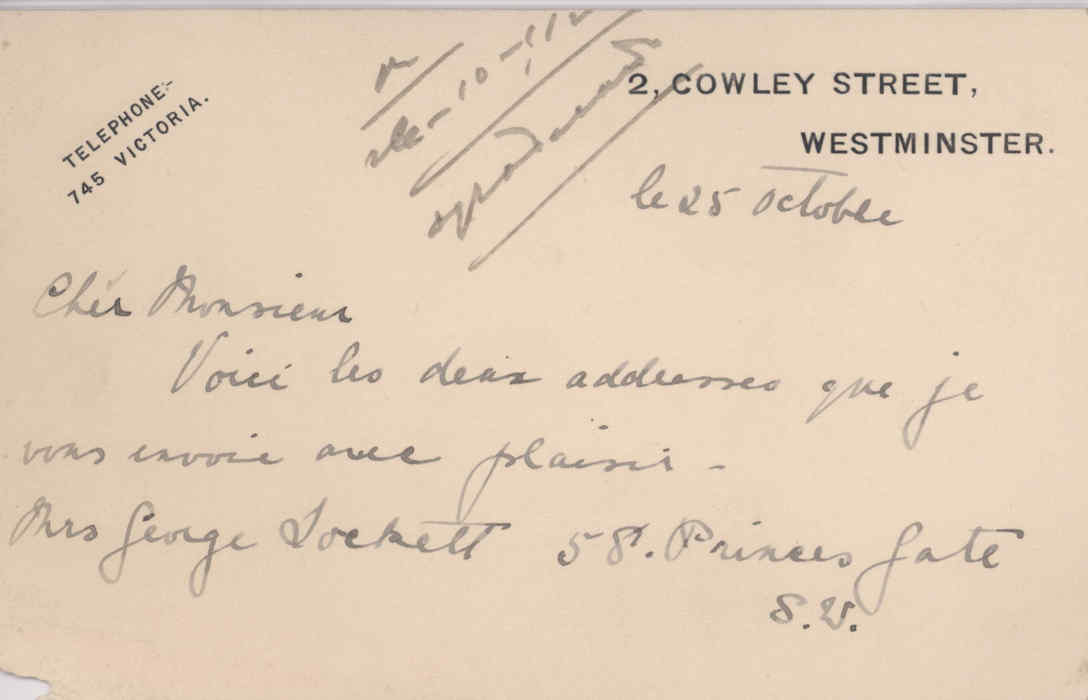 TELEPHONE:-
745 VICTORIA.
2, COWLEY STREET,
WESTMINSTER.
le 25 Octobre
Cher Monsieur
Voici les deux addresses que je
vous envoie avec plaisir -
Mrs George Lockett 58. Princes Gate
S.W.